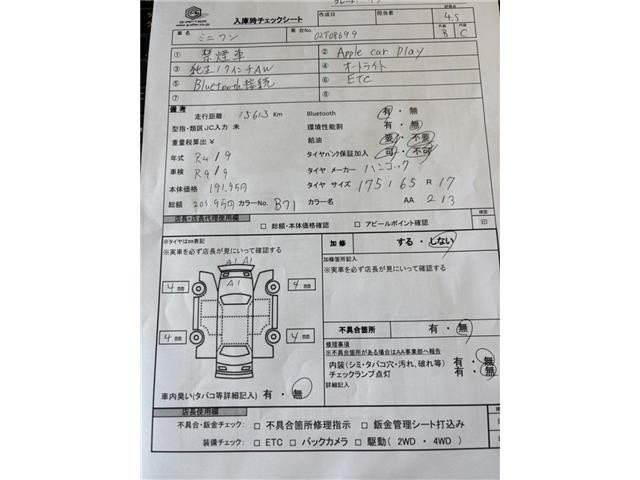 G-AFTER
入庫時チェックシート 作成日 担当者 4.5
車名 ミニワン 車台No. 02T08699 B C
① 禁煙車 ② Apple car play
③ 純正17インチAW ④ オートライト
⑤ Bluetooth接続 ⑥ ETC
⑦ ⑧
備考
走行距離 15613 Km Bluetooth 有・無
型指・類区JC入力 未 環境性能割 有・無
重量税算出 ¥ 給油 要・不要
年式 R4/9 タイヤパンク保証加入 可・不可
車検 R9/9 タイヤ メーカー ハンコック
本体価格 191.9万円 タイヤ サイズ 175/65 R 17
総額 203.9万円 カラーNo. B71 カラー名 AA 213
店長・店長代理使用欄 □ 総額・本体価格確認 □ アピールポイント確認 印
※タイヤはmm表記
※実車を必ず店長が見にいって確認する
加修 する・しない
加修箇所記入
※実車を必ず店長が見にいって確認する
A1 A1
A1
4 mm 4 mm
4 mm 4 mm
不具合箇所 有・無
修理事項
※不具合箇所がある場合はAA事業部へ報告
内装(シミ・タバコ穴・汚れ、破れ等) 有・無
チェックランプ点灯 有・無
詳細記入
車内臭い(タバコ等詳細記入) 有・無
店長使用欄
不具合・鈑金チェック: □ 不具合箇所修理指示 □ 鈑金管理シート打込み
装備チェック: □ ETC □ バックカメラ □ 駆動( 2WD ・ 4WD )